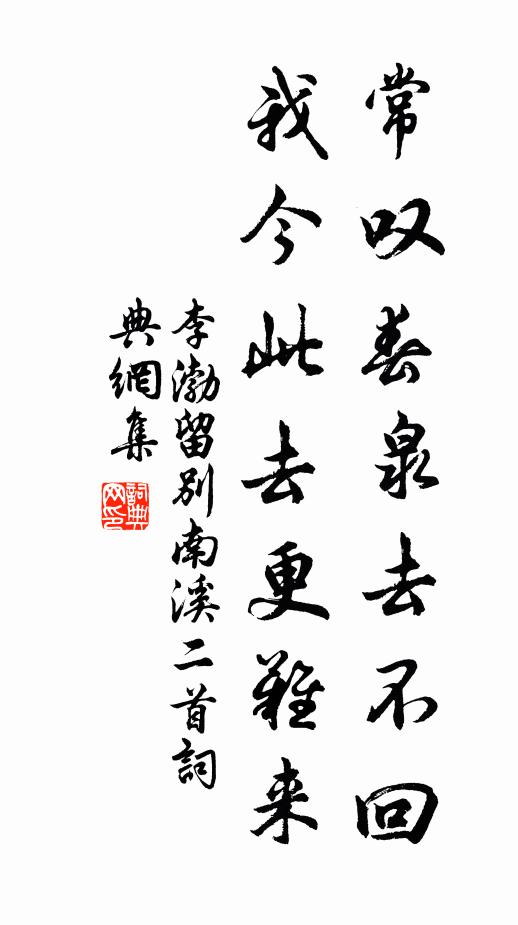 常叹春泉去不回
我今此去更難来
李渤留别南溪二首詞
典網集
詞典
网印